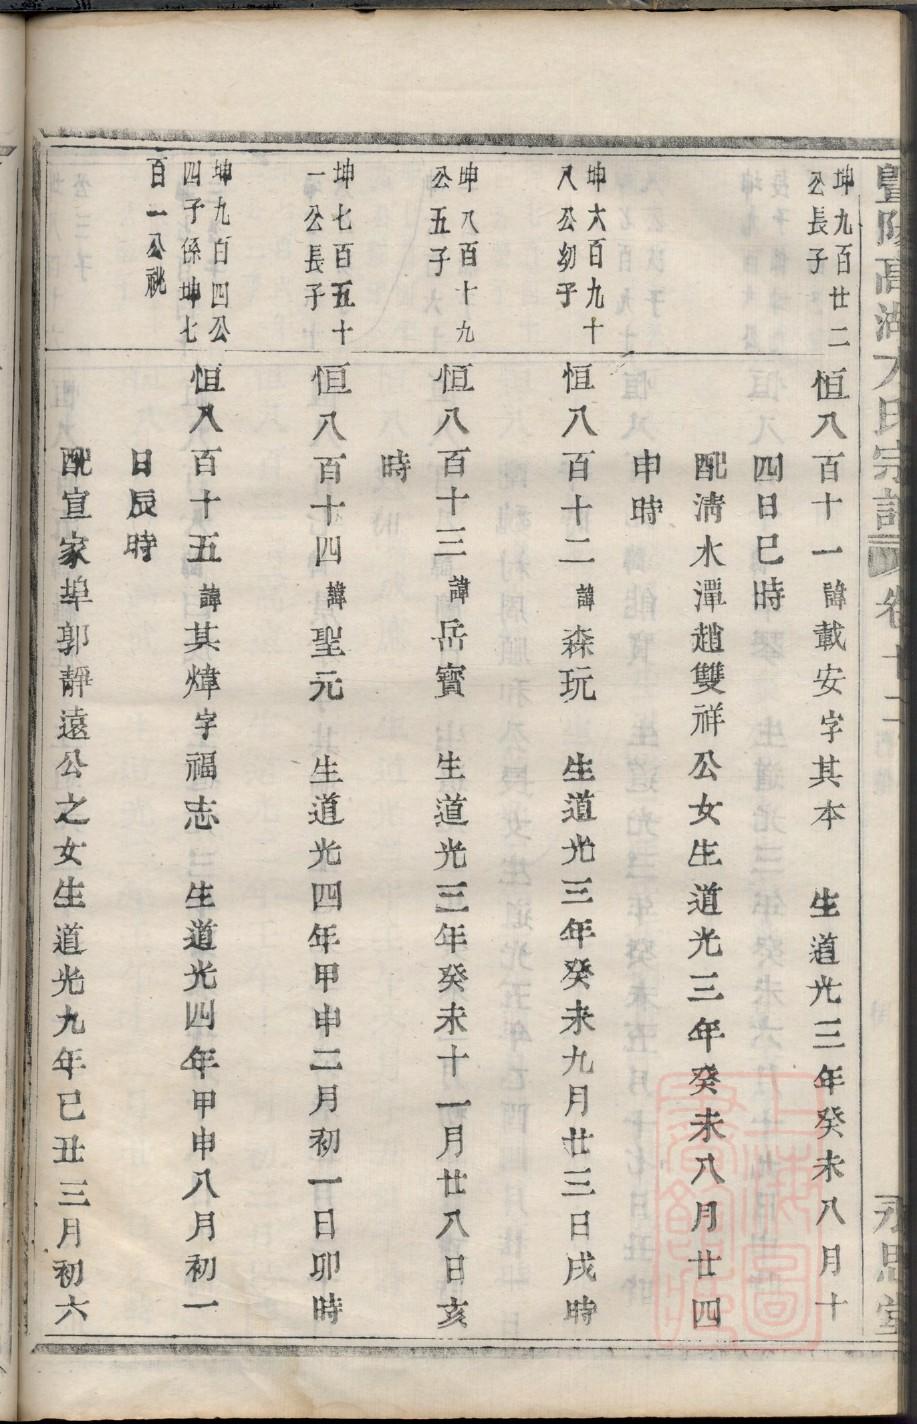 暨陽高湖方氏宗譜 卷廿二 永思堂
坤九百廿二
公長子
恒八百十一諱載安字其本 生道光三年癸未八月十
四日巳時
配淸水潭趙雙祥公女生道光三年癸未八月廿四
申時
坤六百九十
八公幼子
恒八百十二諱森玩 生道光三年癸未九月廿三日戌時
坤八百十九
公五子
恒八百十三諱岳寶 生道光三年癸未十一月廿八日亥
時
坤七百五十
一公長子
恒八百十四諱聖元 生道光四年甲申二月初一日卯時
坤九百四公
四子係坤七
百一公祧
恒八百十五諱其煒字福志 生道光四年甲申八月初一
日辰時
配宣家埠郭靜遠公之女生道光九年巳丑三月初六